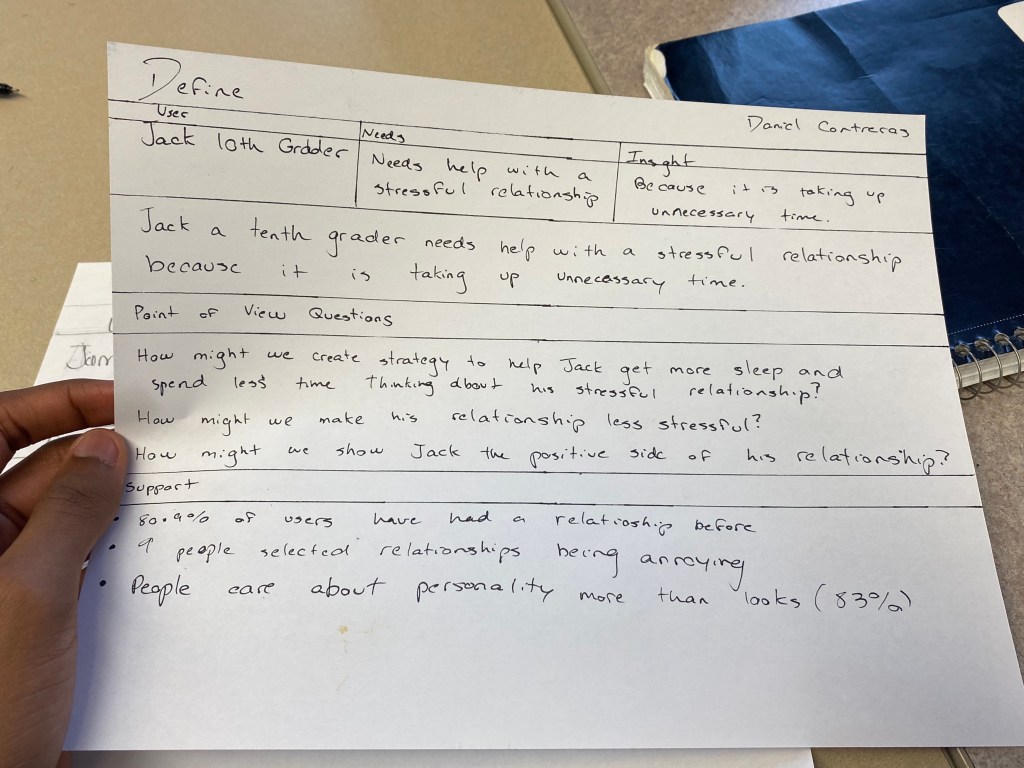 Define
Daniel Contreras
User
Needs
Insght
Jack 10th Grader
Needs help with a
stressful relationship
Because it is taking up
unnecessary time.
Jack a tenth grader needs help with a stressful relationship
because it is taking up unnecessary time.
Point of View Questions
How might we create strategy to help Jack get more sleep and
spend less time thinking about his stressful relationship?
How might we make his relationship less stressful?
How might we show Jack the positive side of his relationship?
Support
• 80.9% of users have had a relatioship before
• 9 people selected relationships being annoying
• People care about personality more than looks (83%)